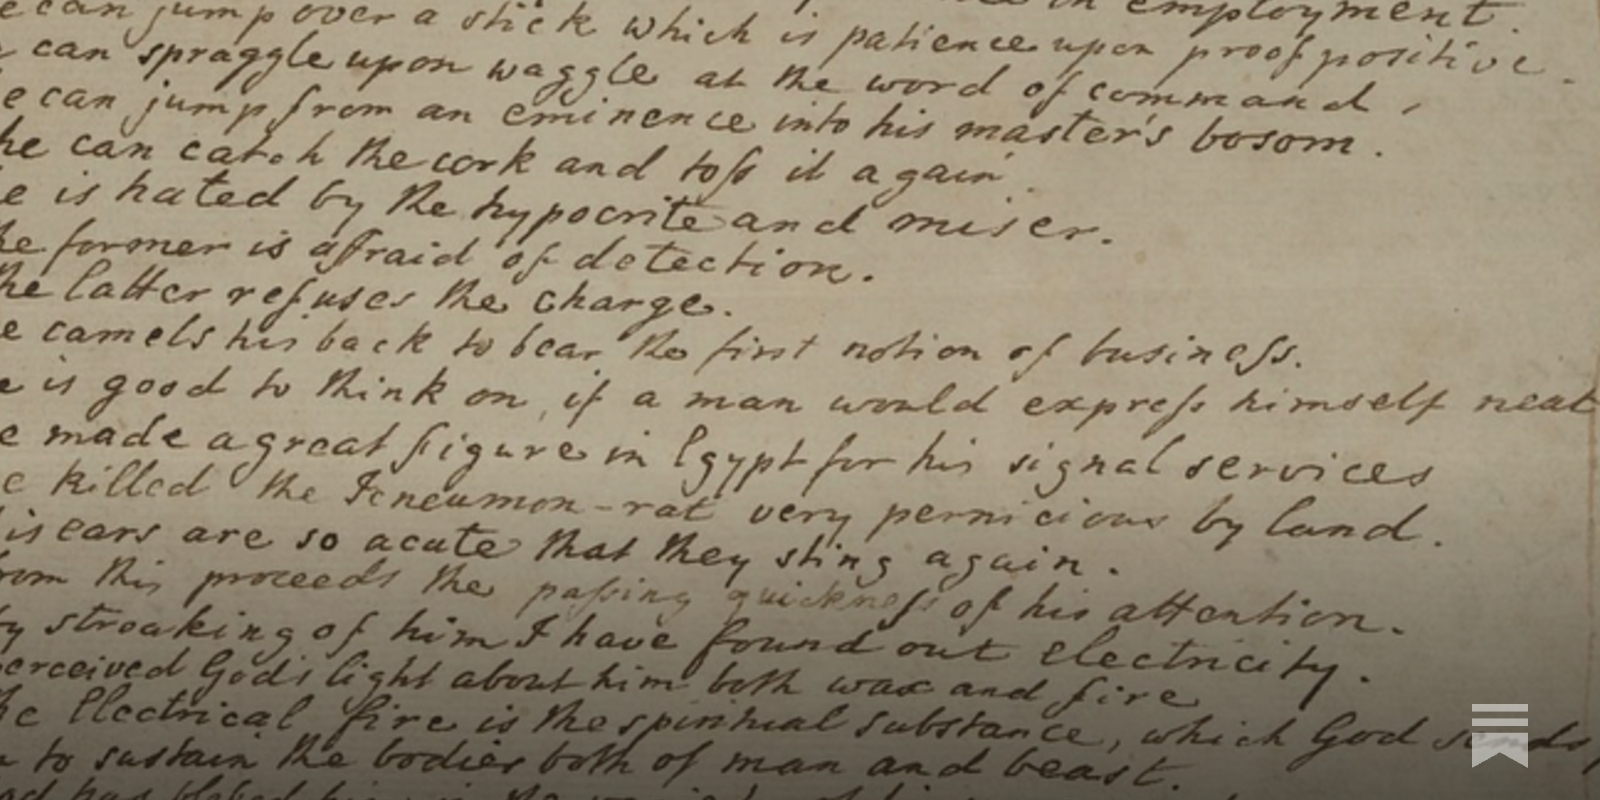 in employment.
e can jump over a stick which is patience upon proof positive.
can spraggle upon waggle at the word of command.
e can jump from an eminence into his master's bosom.
he can catch the cork and toſs it again.
e is hated by the hypocrite and miser.
he former is afraid of detection.
he latter refuses the charge.
e camels his back to bear the first notion of busineſs.
e is good to think on, if a man would expreſs himself neat
e made a great figure in Egypt for his signal services
e killed the Icneumon-rat very pernicious by land.
is ears are so acute that they sting again.
rom this proceeds the paſsing quickneſs of his attention.
y stroaking of him I have found out electricity.
erceived God's light about him both wax and fire
he Electrical fire is the spiritual substance, which God sends
to sustain the bodies both of man and beast.